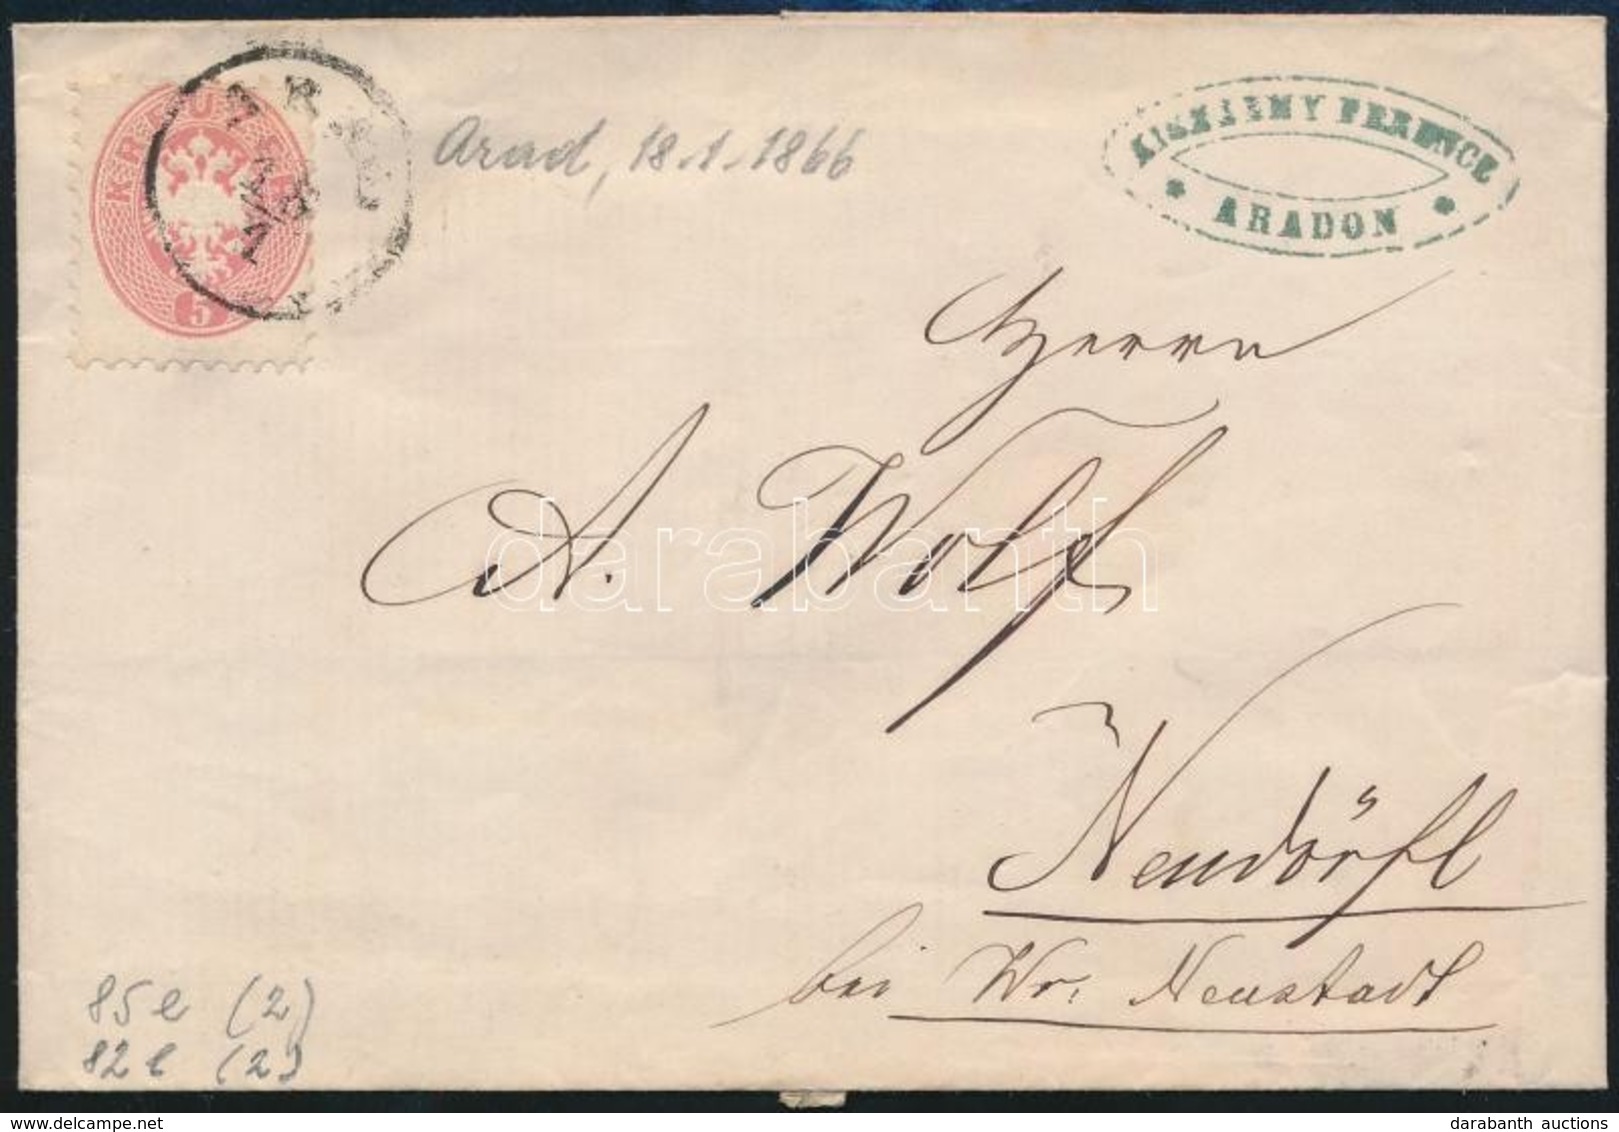 KREUZER
5
Arad, 18.1.1866
KISZÁRMY FERENCZ
* ARADON *
Herrn
A. Wolf
Neudörfl
bei Wr. Neustadt
85 e (2)
82 e (2)
darabanth
© darabanth auctions
www.delcampe.net